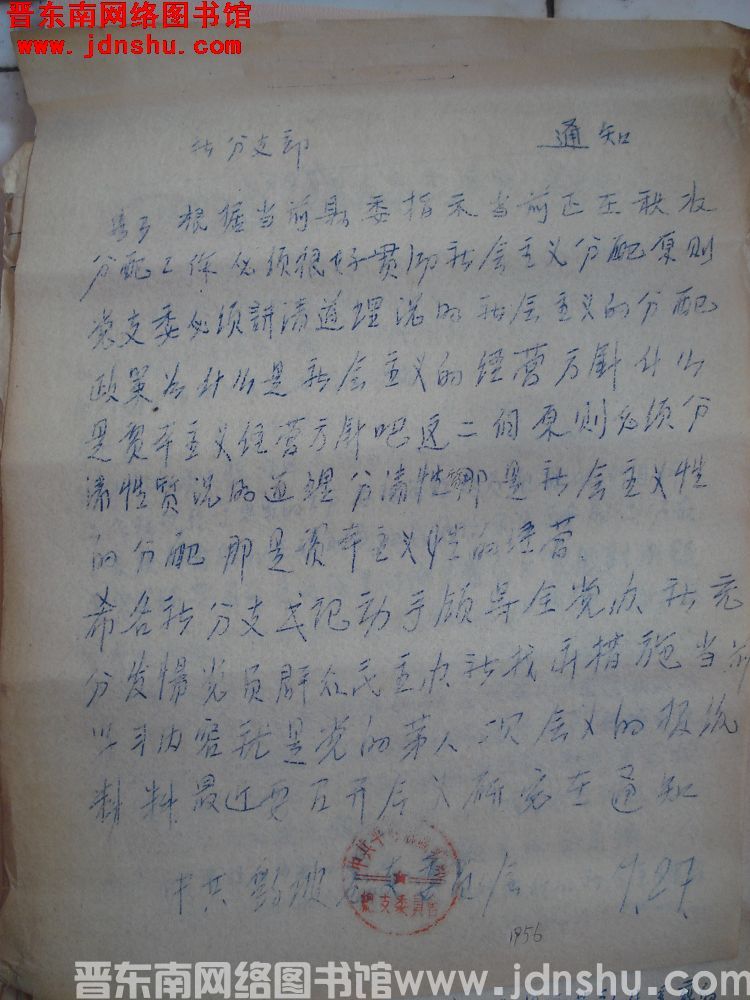 晋东南网络图书馆
www.jdnshu.com
通知
社分支部
根据当前县委指示当前正在秋收
分配工作必须很好贯彻社会主义分配原则
党支委必须讲清道理说明社会主义的分配
政策为什么是社会主义的经营方针什么
是资本主义经营方针吧这二個原则必须分
清性質说明道理分清性那是社会主义性
的分配那是资本主义性的经营。
希各社分支书记动手领导全党办社充
分发揚党员群众民主办社找新措施当前
学习内容就是党的第八次会义的报统
材料最近要召开会义研究在通知
中共
總支委員會
1956
晋东南网络图书馆 www.jdnshu.com